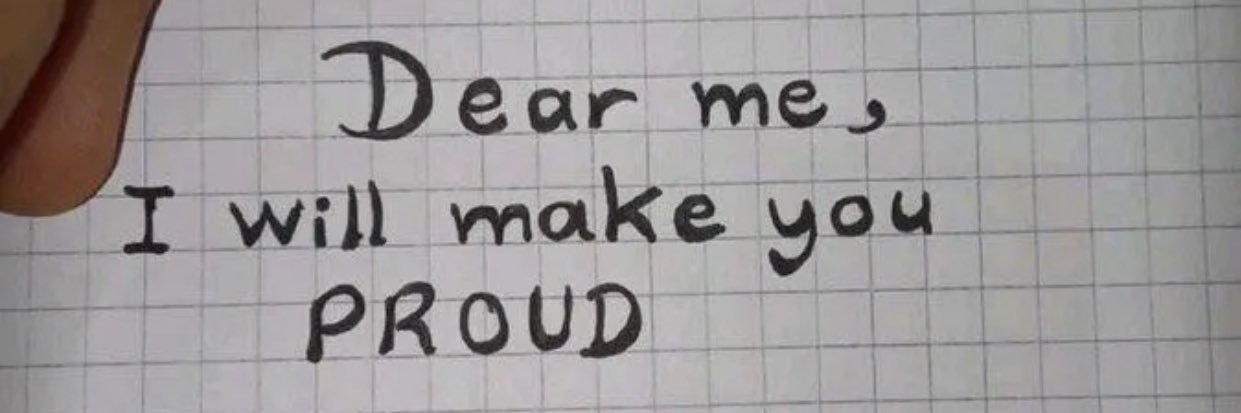 Dear me,
I will make you
PROUD